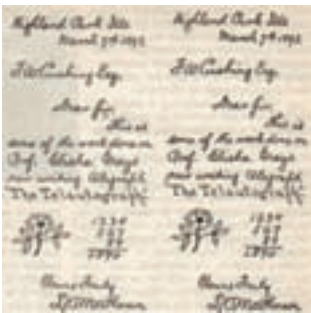 Highland Park Ills
March 7th 1892
F W Cushing Esq.
Dear Sir,
This is
some of the work done on
Prof. Elisha Grays
new writing telegraph
The Telautograph
1890
Yours truly
Highland Park Ills
March 7th 1892
F W Cushing Esq.
Dear Sir,
This is
some of the work done on
Prof. Elisha Grays
new writing telegraph
The Telautograph
1890
Yours truly